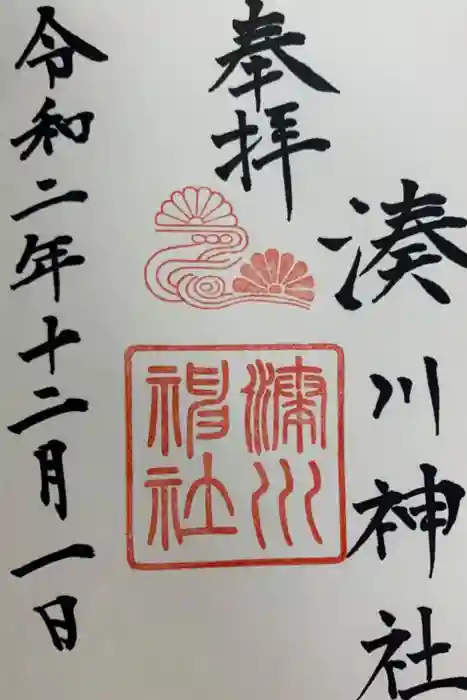 湊川神社
奉拝
湊川
神社
令和二年十二月一日